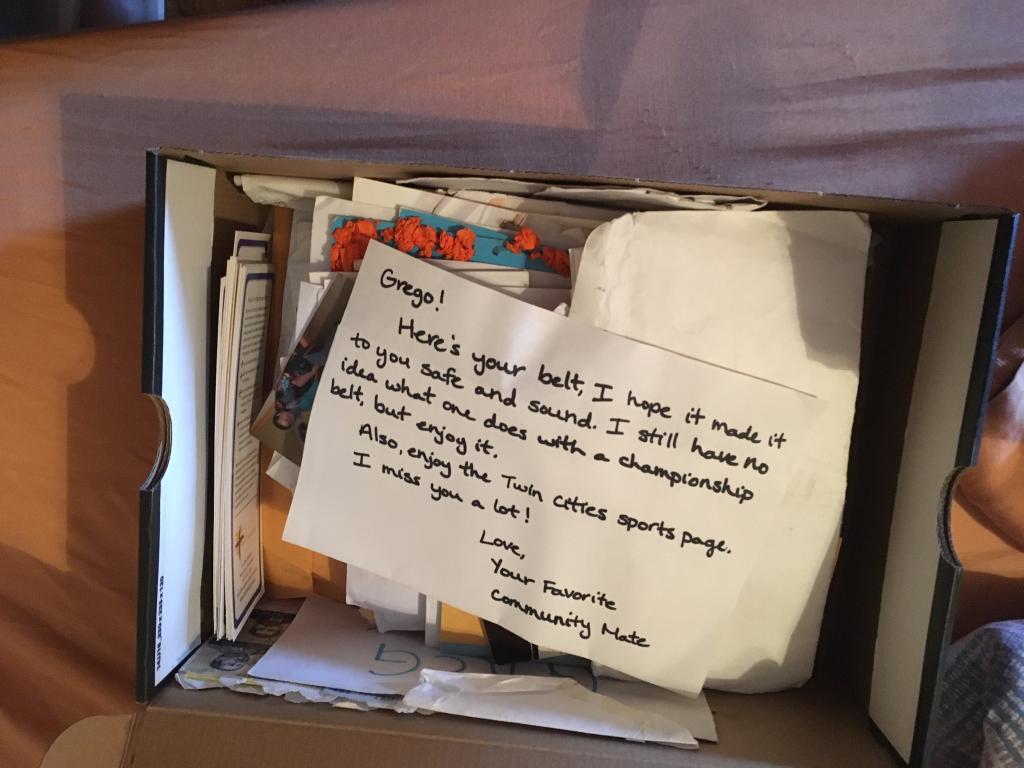 Grego!
Here's your belt, I hope it made it
to you safe and sound. I still have no
idea what one does with a championship
belt, but enjoy it.
Also, enjoy the Twin Cities sports page.
I miss you a lot!
Love,
Your Favorite
Community Mate